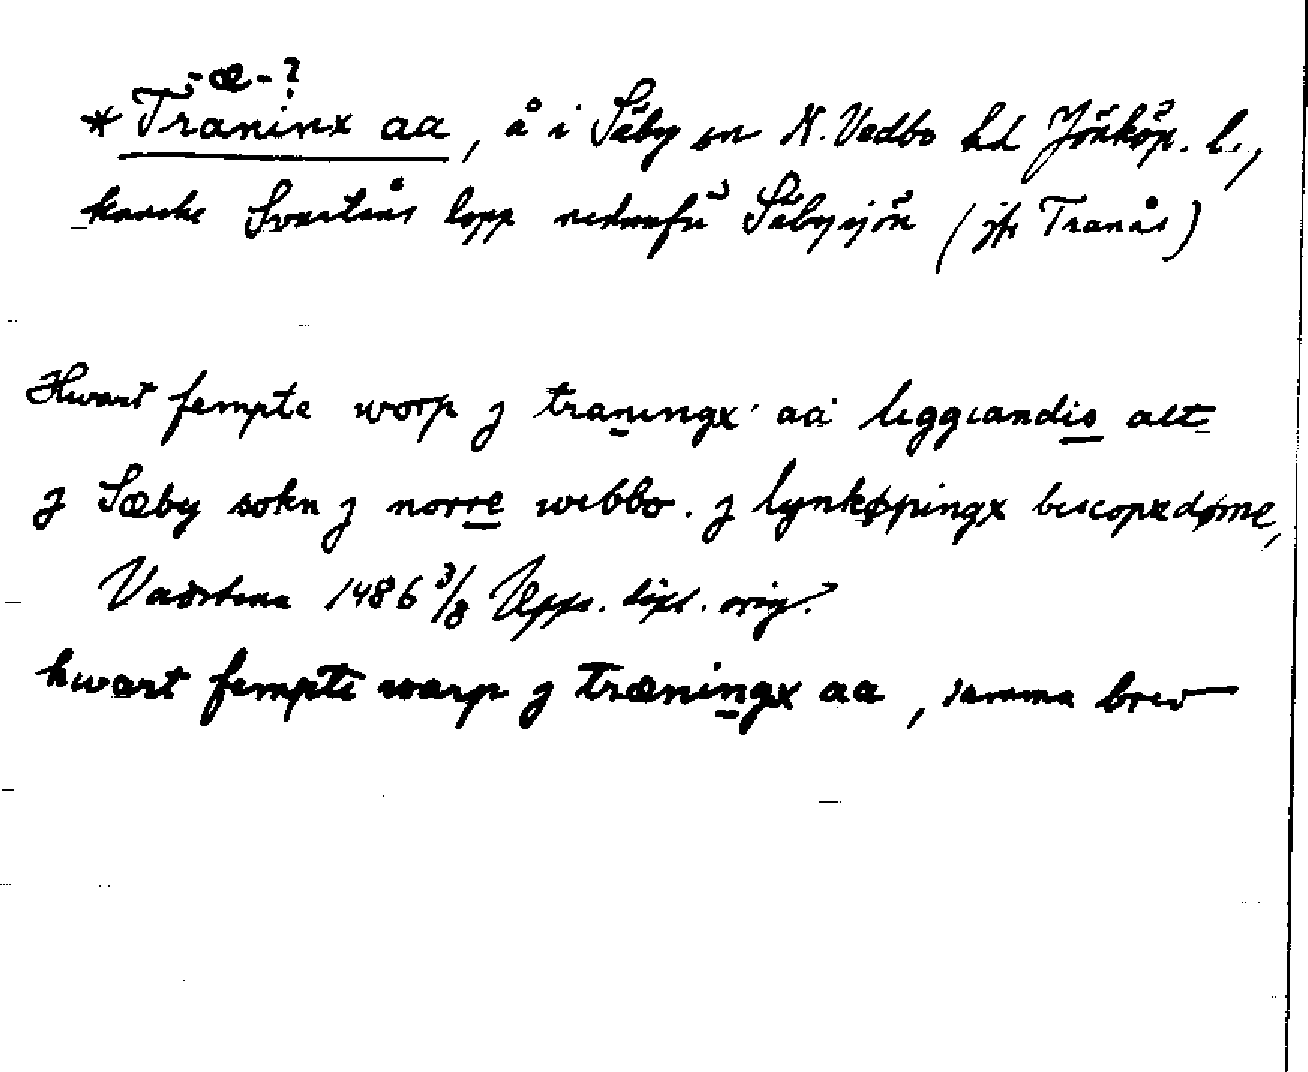 -æ-?
* Traninx aa, å i Säby sn N. Vedbo hd Jönköp. l.,
kanske Svartåns lopp nedanför Säbysjön (jfr Tranås)
Hwart fempte worp j traningx aa liggiandis alt
j Sæby sokn j norre webbo. j lynkøpingx biscopxdøme,
Vadstena 1486 3/8 Upps. dipl. orig.
hwart fempte warp j træningx aa, samma brev